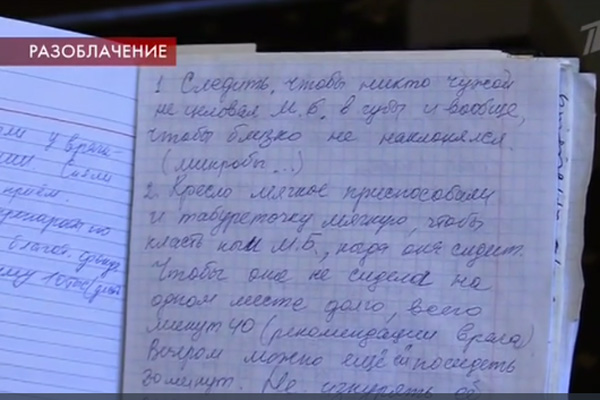 РАЗОБЛАЧЕНИЕ
1 Следить, чтобы никто чужой
не целовал М.Б. в губы и вообще,
чтобы близко не наклонялся.
(микробы...)
2. Кресло мягкое приспособили
и табуреточку мягкую, чтобы
класть ноги М.Б., когда она сидит.
Чтобы она не сидела на
одном месте долго, всего
минут 40 (рекомендации врача)
Вечером можно ещё посидеть
30 минут. Не изнурять об
приём.
благот. фонд